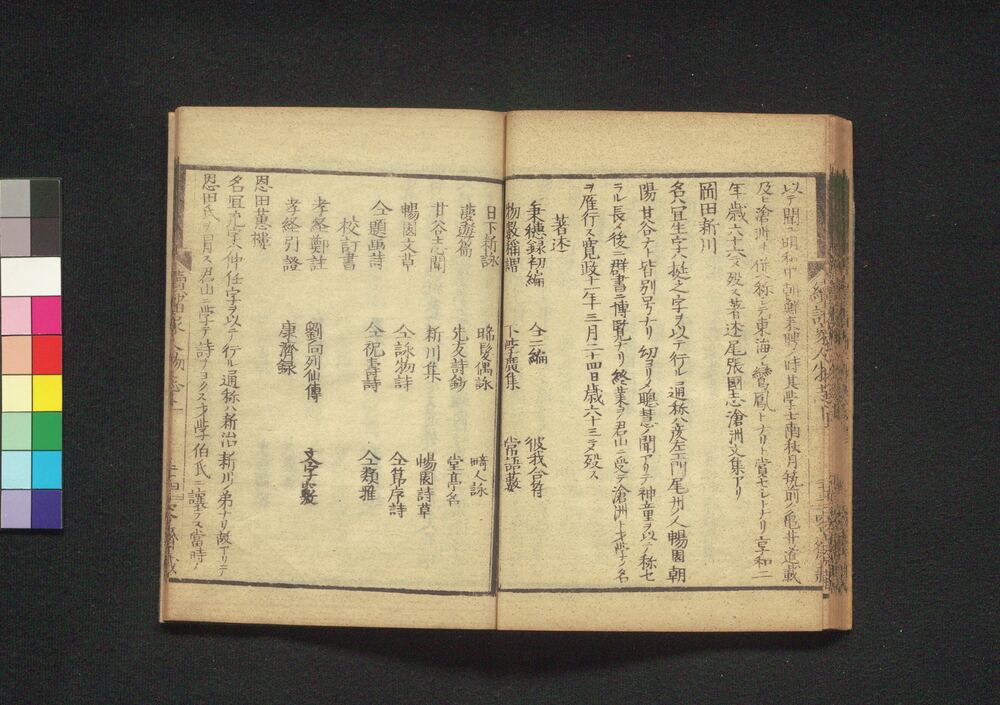 以テ聞ユ明和中朝鮮来聘ノ時其学士南秋月筑前ノ亀井道載
及ヒ滄洲ヲ併ヘ称シテ東海ノ鸞鳳トナリト賞セレトナリ享和二
年歳六十六ニテ歿ス著述尾張國志滄洲文集アリ
岡田新川
名ハ宜生字ハ挺之字ヲ以テ行ル通称ハ彦左エ門尾州ノ人暢園朝
陽甘谷ナト皆別号ナリ幼ヨリノ聰慧ノ聞アリテ神童ヲ以テ称セ
ラル長メ後ニ群書ニ博覧ナリ終業ヲ君山ニ受テ滄洲ト才学ノ名
ヲ雁行ス寛政十一年三月二十四日歳六十三ニテ歿ス
著述
秉穂録初編 仝二編 彼我合符
物数称謂 下学廣集 常語藪
日下新詠 晞髪偶詠 畸人詠
藻遊篇 先友詩鈔 堂亭名
甘谷志聞 新川集 暢園詩草
暢園文草 仝詠物詩 仝飾序詩
仝題画詩 仝祝壽詩 仝類雅
校訂書
孝経鄭註 劉向列仙傳 文字藪
孝経引證 康濟録
恩田蕙樓
名ハ宜充字ハ仲任字ヲ以テ行ル通称ハ新治新川ノ弟ナリ故アリテ
恩田氏ヲ冒ス君山ニ学テ詩ヲヨクス才学伯氏ニ讓ラス當時ノ